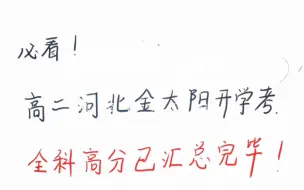 必看！
高二河北金太阳开学考
全科高分已汇总完毕！